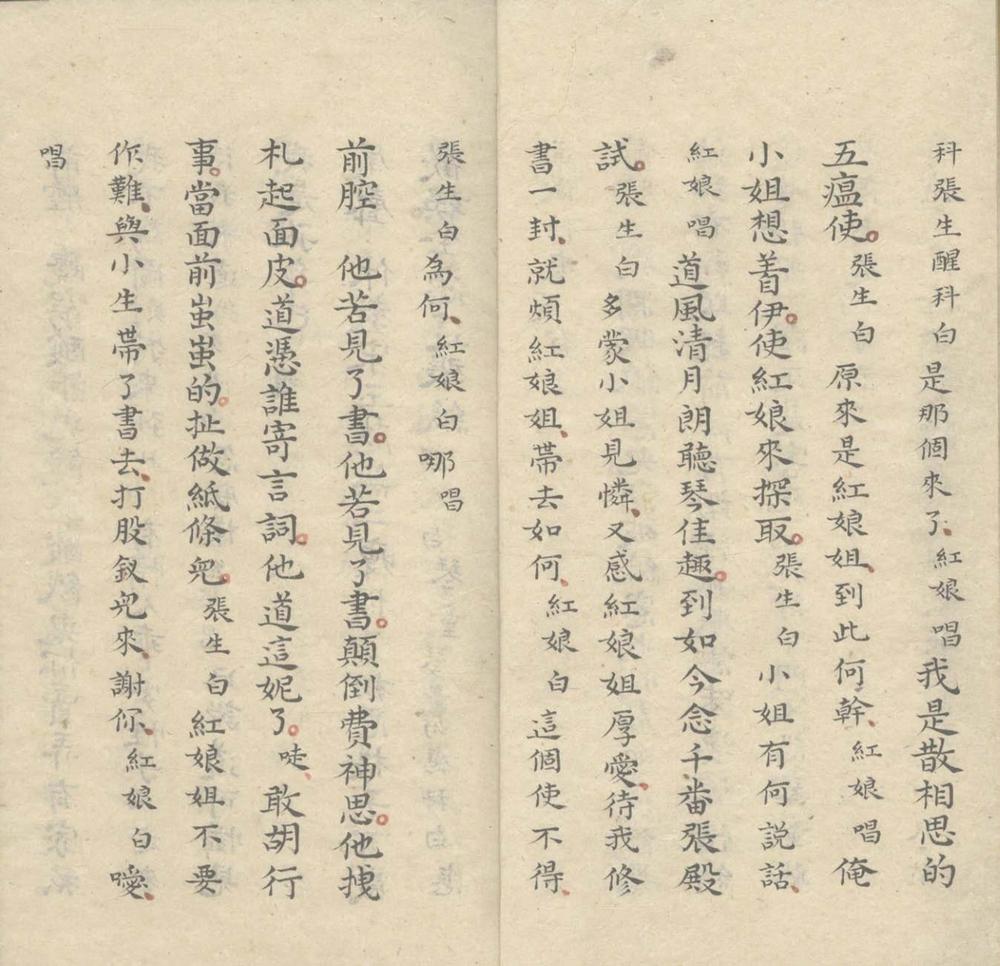 科張生醒科白是那個來了紅娘唱我是散相思的
五瘟使。張生白原來是紅娘姐、到此何幹、紅娘唱俺
小姐想着伊。使紅娘來探取。張生白小姐有何説話、
紅娘唱道風清月朗聽琴佳趣。到如今念千番張殿
試。張生白多蒙小姐見憐、又感紅娘姐厚愛、待我修
書一封、就煩紅娘姐、帶去如何、紅娘白這個使不得、
張生白為何、紅娘白哪唱
前腔他若見了書。他若見了書。顛倒費神思。他拽
札起面皮。道憑誰寄言詞。他道這妮了。唗、敢胡行
事。當面前蚩蚩的。扯做紙條兒。張生白紅娘姐不要
作難、與小生帶了書去、打股釵兒來、謝你、紅娘白噯、
唱